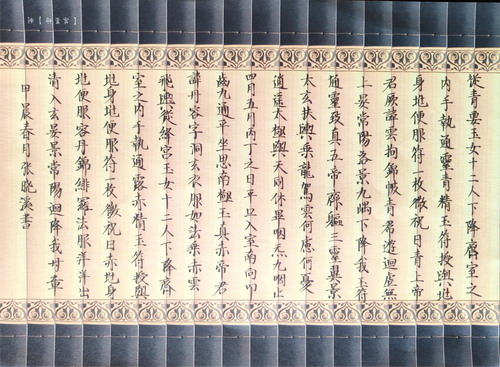 從青要玉女十二人下降齋室之
内手執通靈青精玉符授與地
身地便服符一枚微祝曰青上帝
君厥諱雲拘錦帔青君遊迴虛無
上晏常陽各景九嵎下降我玉符
通靈致真五帝齊軀三靈翼景
太玄扶輿乘龍駕雲何慮何憂
逍遙太極與天同休畢咽炁九咽止
四月五月丙丁之日平旦入室南向叩
齒九通平坐思南極玉真赤帝君
諱丹容字洞玄衣服如法乘赤雲
飛輿從絳宮玉女十二人下降齋
室之内手執通露赤精玉符授與
地身地便服符一枚微祝曰赤地身
地便服容丹錦緋羅法服洋洋出
清入玄晏景常陽迴降我
甲晨春月張曉溪書